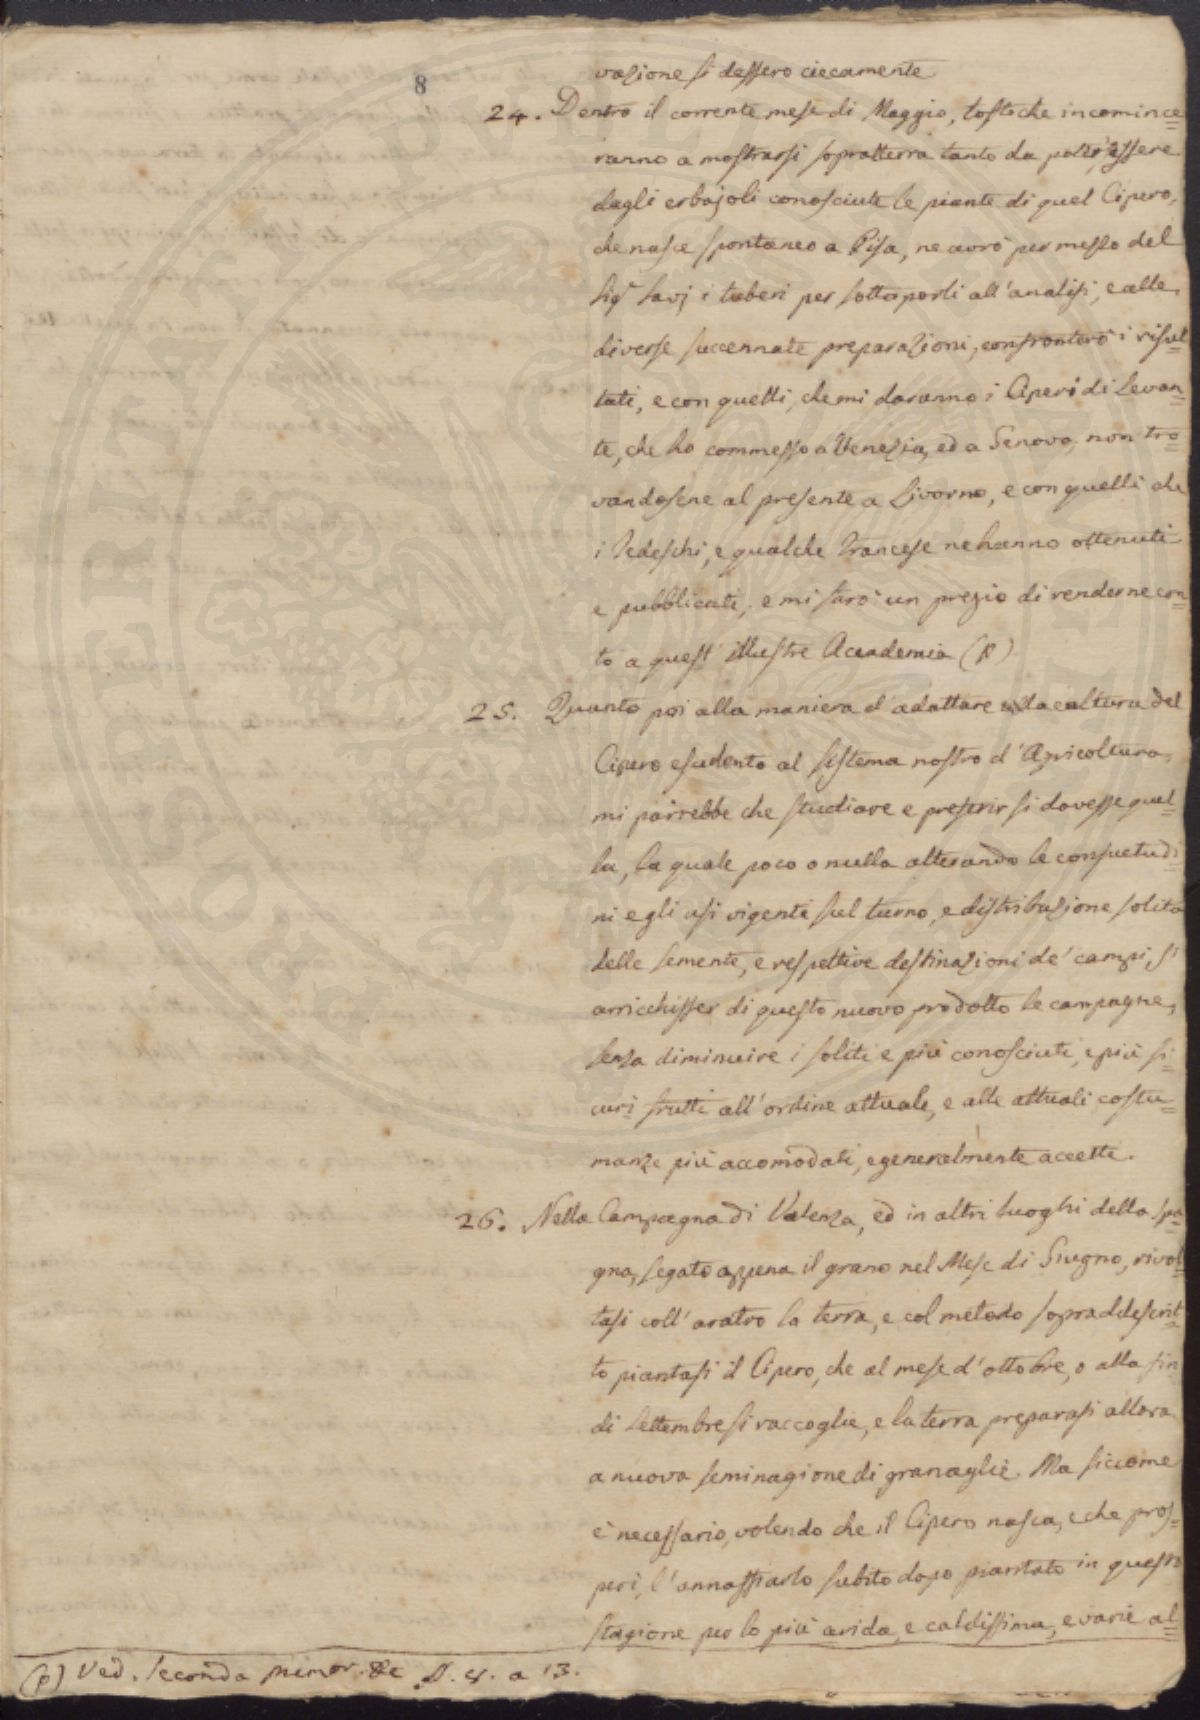 8
vazione si dessero ciecamente
24. Dentro il corrente mese di Maggio, tostoche incomince=
ranno a mostrarsi sopratterra tanto da poter essere
dagli erbajoli conosciute le piante di quel Cipero,
che nasce spontaneo a Pisa, ne avrò per mezzo del
Sigr Savj i tuberi per sottoporli all'analisi, e alle
diverse succennate preparazioni, confronterò i risul=
tati, e con quelli, che mi daranno i Ciperi di Levan=
te, che ho commesso a Venezia, ed a Genova, non tro=
vandosene al presente a Livorno, e con quelli che
i Tedeschi, e qualche Francese ne hanno ottenuti
e pubblicati, e mi farò un pregio di renderne con=
to a quest' illustre Accademia (p)
25. Quanto poi alla maniera d'adattare la cultura del
Cipero esculento al sistema nostro d'Agricoltura,
mi parrebbe che studiare e preferir si dovesse quel=
la, la quale poco o nulla alterando le consuetudi=
ni e gli usi vigenti sul turno, e distribuzione solita
delle semente, e respettive destinazioni de' campi, si
arricchisser di questo nuovo prodotto le campagne,
senza diminuire i soliti e più conosciuti, e più si=
curi frutti all'ordine attuale, e alle attuali costu=
manze più accomodati, e generalmente accetti.
26. Nella Campagna di Valenza, ed in altri luoghi della Spa=
gna, segato appena il grano nel Mese di Giugno, rivol=
tasi coll'aratro la terra, e col metodo sopraddescrit=
to piantasi il Cipero, che al mese d'ottobre, o alla fin
di Settembre si raccoglie, e la terra preparasi allora
a nuova seminagione di granaglie. Ma siccome
è necessario, volendo che il Cipero nasca, e che pros=
peri, l'annaffiarlo subito dopo piantato in questa
stagione per lo più arida, e caldissima, e varie al=
(p) Ved. Seconda memor. &c §. 4. a 13.